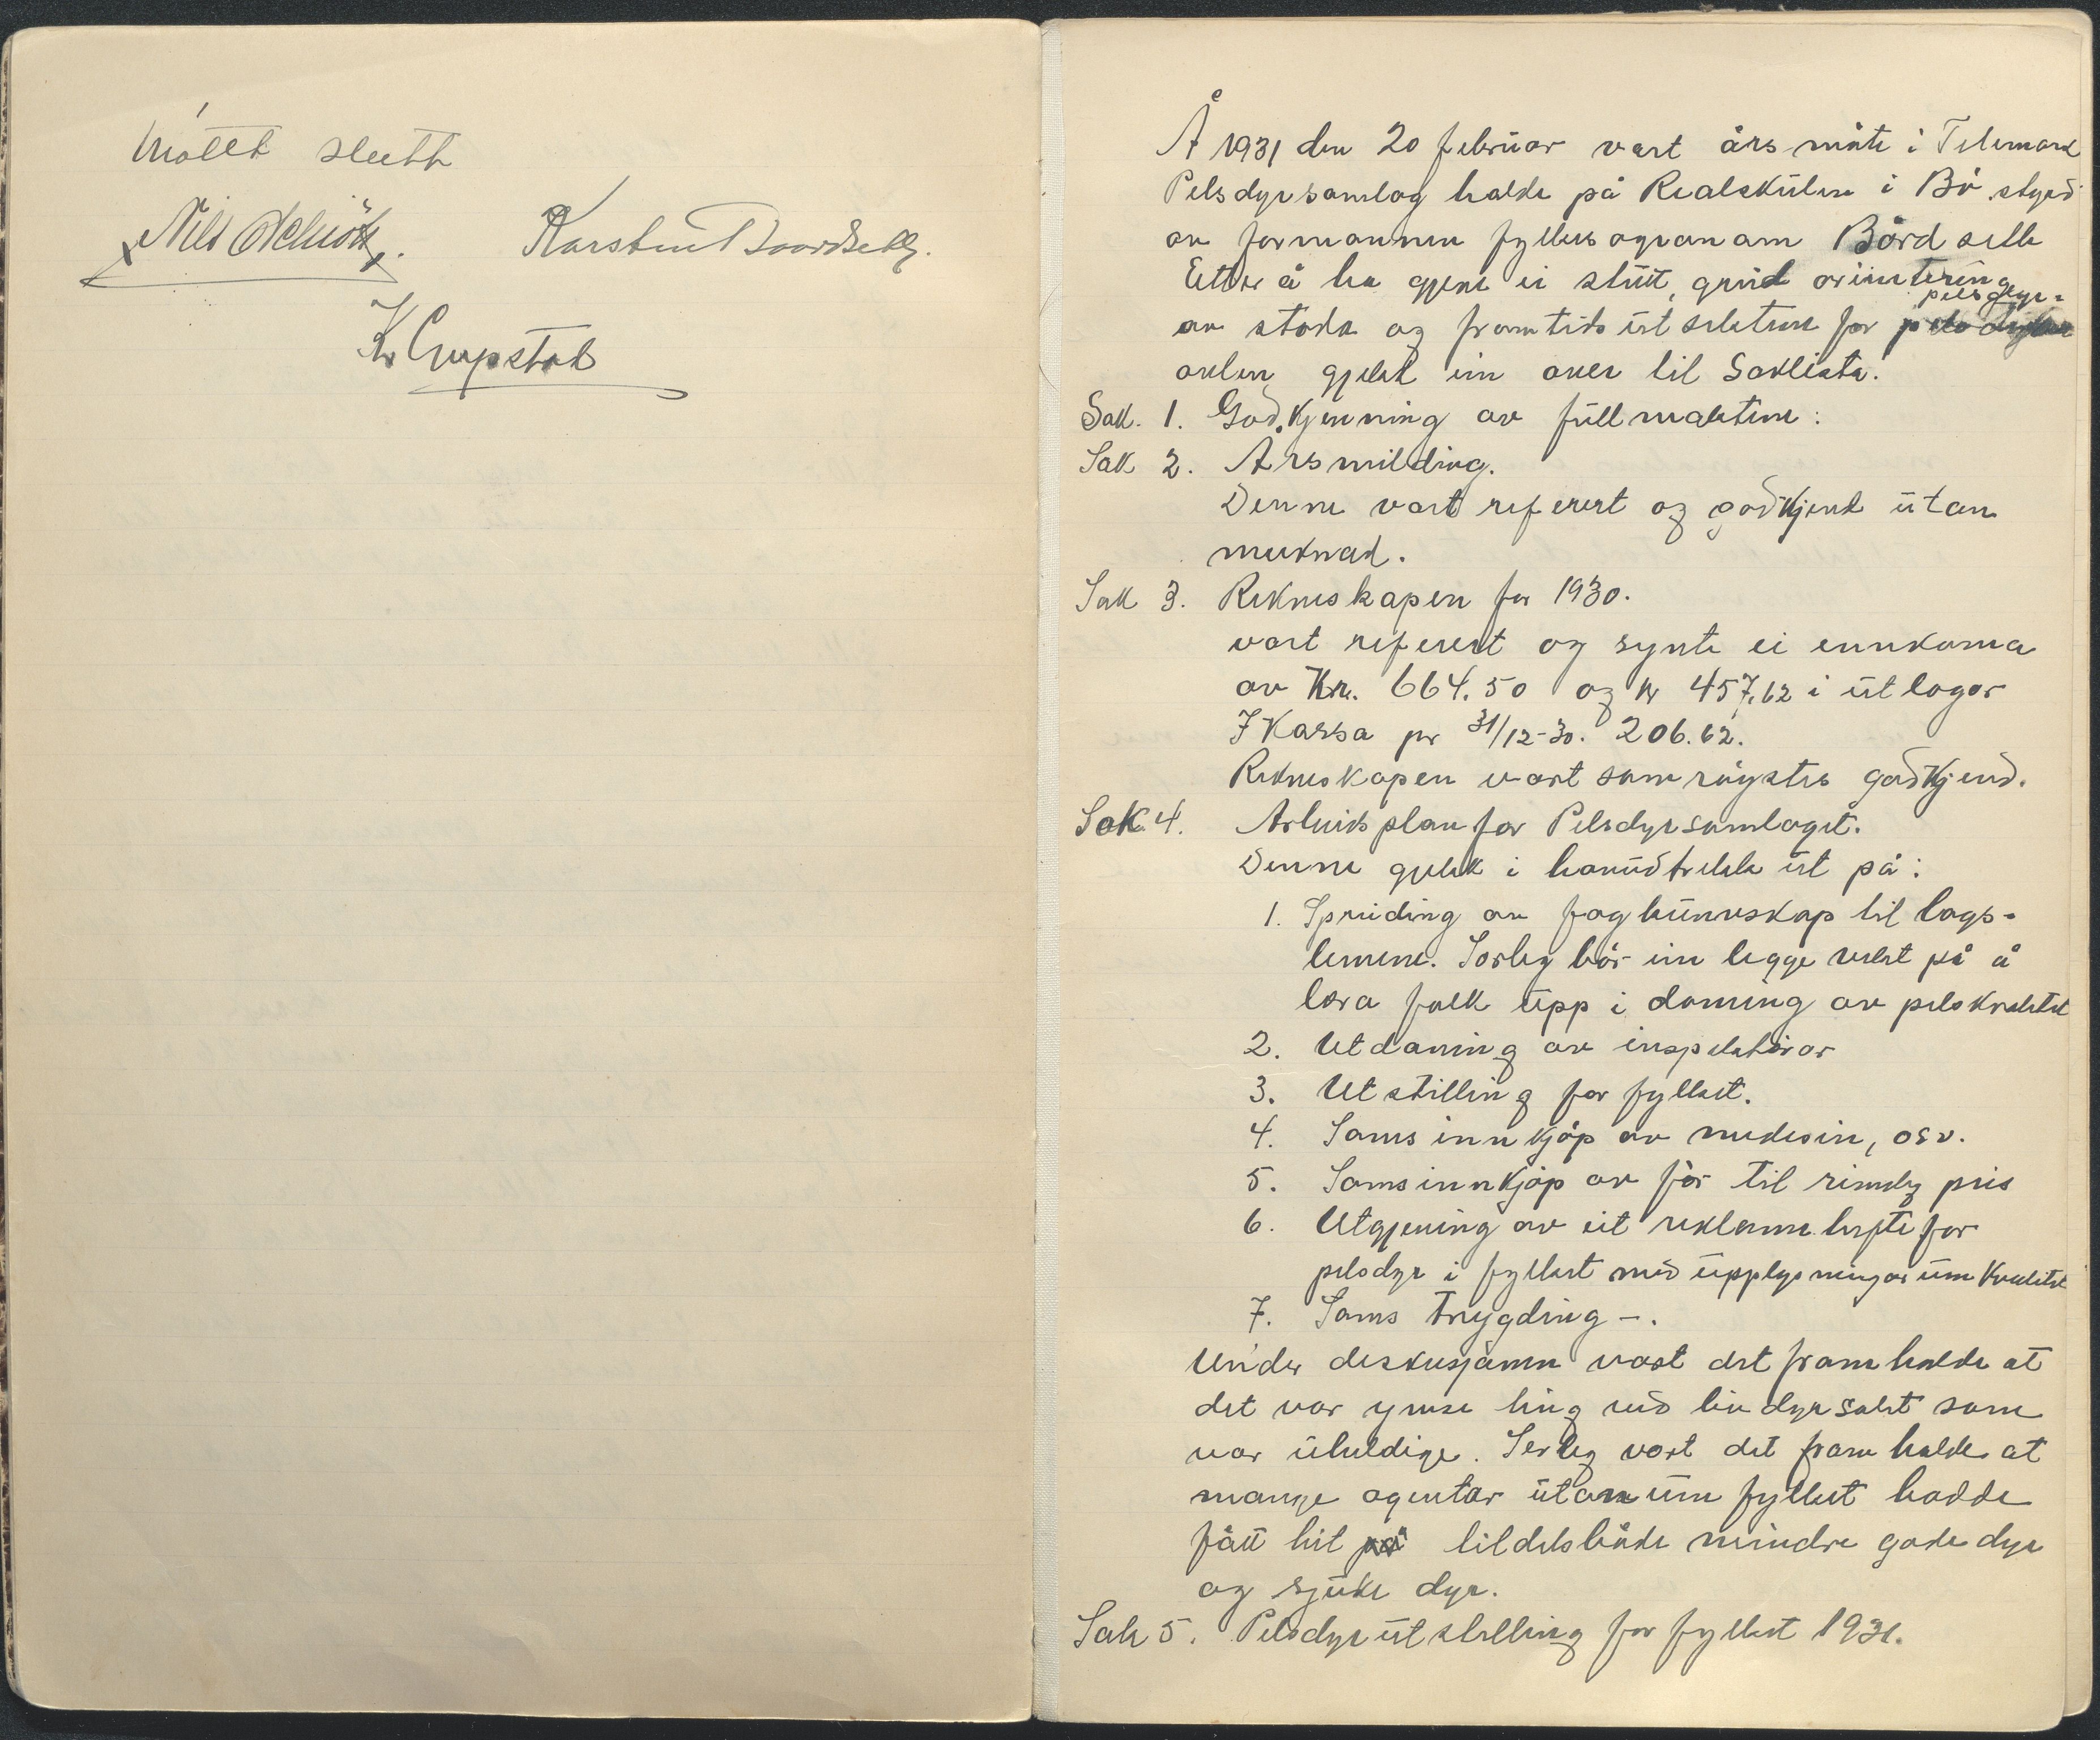 Møtet slutt
Nils Schiött. Karsten Baardseth.
K.
Å 1931 den 20 februar vart års møte i Telemark
Pelsdyrsamlag halde på Realskulen i Bø. styrd
av formannen fylkesagronom Bårdseth
Etter å ha gjeve ei stutt, greid orientering
av stoda og framtids utsiktene for pelsdyr-
avlen, gjekk ein over til Saklista.
Sak. 1. Godkjenning av fullmaktene:
Sak 2. Årsmelding.
Denne vart referert og godkjent utan
merknad.
Sak 3. Rekneskapen for 1930.
vart referert og synte ei ennkoma
av Kr. 664.50 og kr 457,62 i utlogor
I Kassa pr 31/12-30. 206.62.
Rekneskapen vart samrøystes godkjend.
Sak 4. Arbeidsplan for Pelsdyrsamlaget.
Denne gjekk i hovudtrekk ut på:
1. Spreiding av fagkunnskap til lags-
lemene. Serleg bør ein legge vekt på å
læra folk upp i doming av pelskvalitet
2. Utdaning av inspektørar
3. Utstilling for fylket.
4. Sams innkjøp av medesin, osv.
5. Sams innkjøp av fòr til rimeleg pris
6. Utgjeving av eit reklame hefte for
pelsdyr i fylket med upplysningar um Kvalitet
7. Sams trygding -.
Under deskusjonen vart det framhalde at
det var ymse ting ved livdyrsalet som
var uheldige. Serleg vart det framhalde at
mange agentar utanum fylket hadde
fått hit på tildels både mindre gode dyr
og sjuke dyr.
Sak 5. Pelsdyrutstilling for fylket 1931.